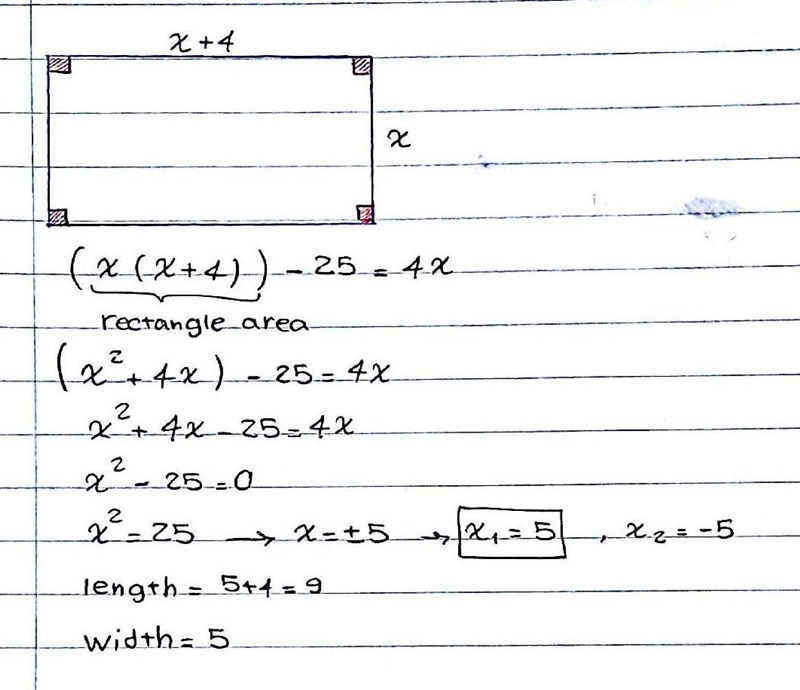 x+4
x
(x(x+4))-25=4x
rectangle area
(x²+4x)-25=4x
x²+4x-25=4x
x²-25=0
x²=25 → x=±5 → x₁=5 , x₂=-5
length=5+4=9
width=5